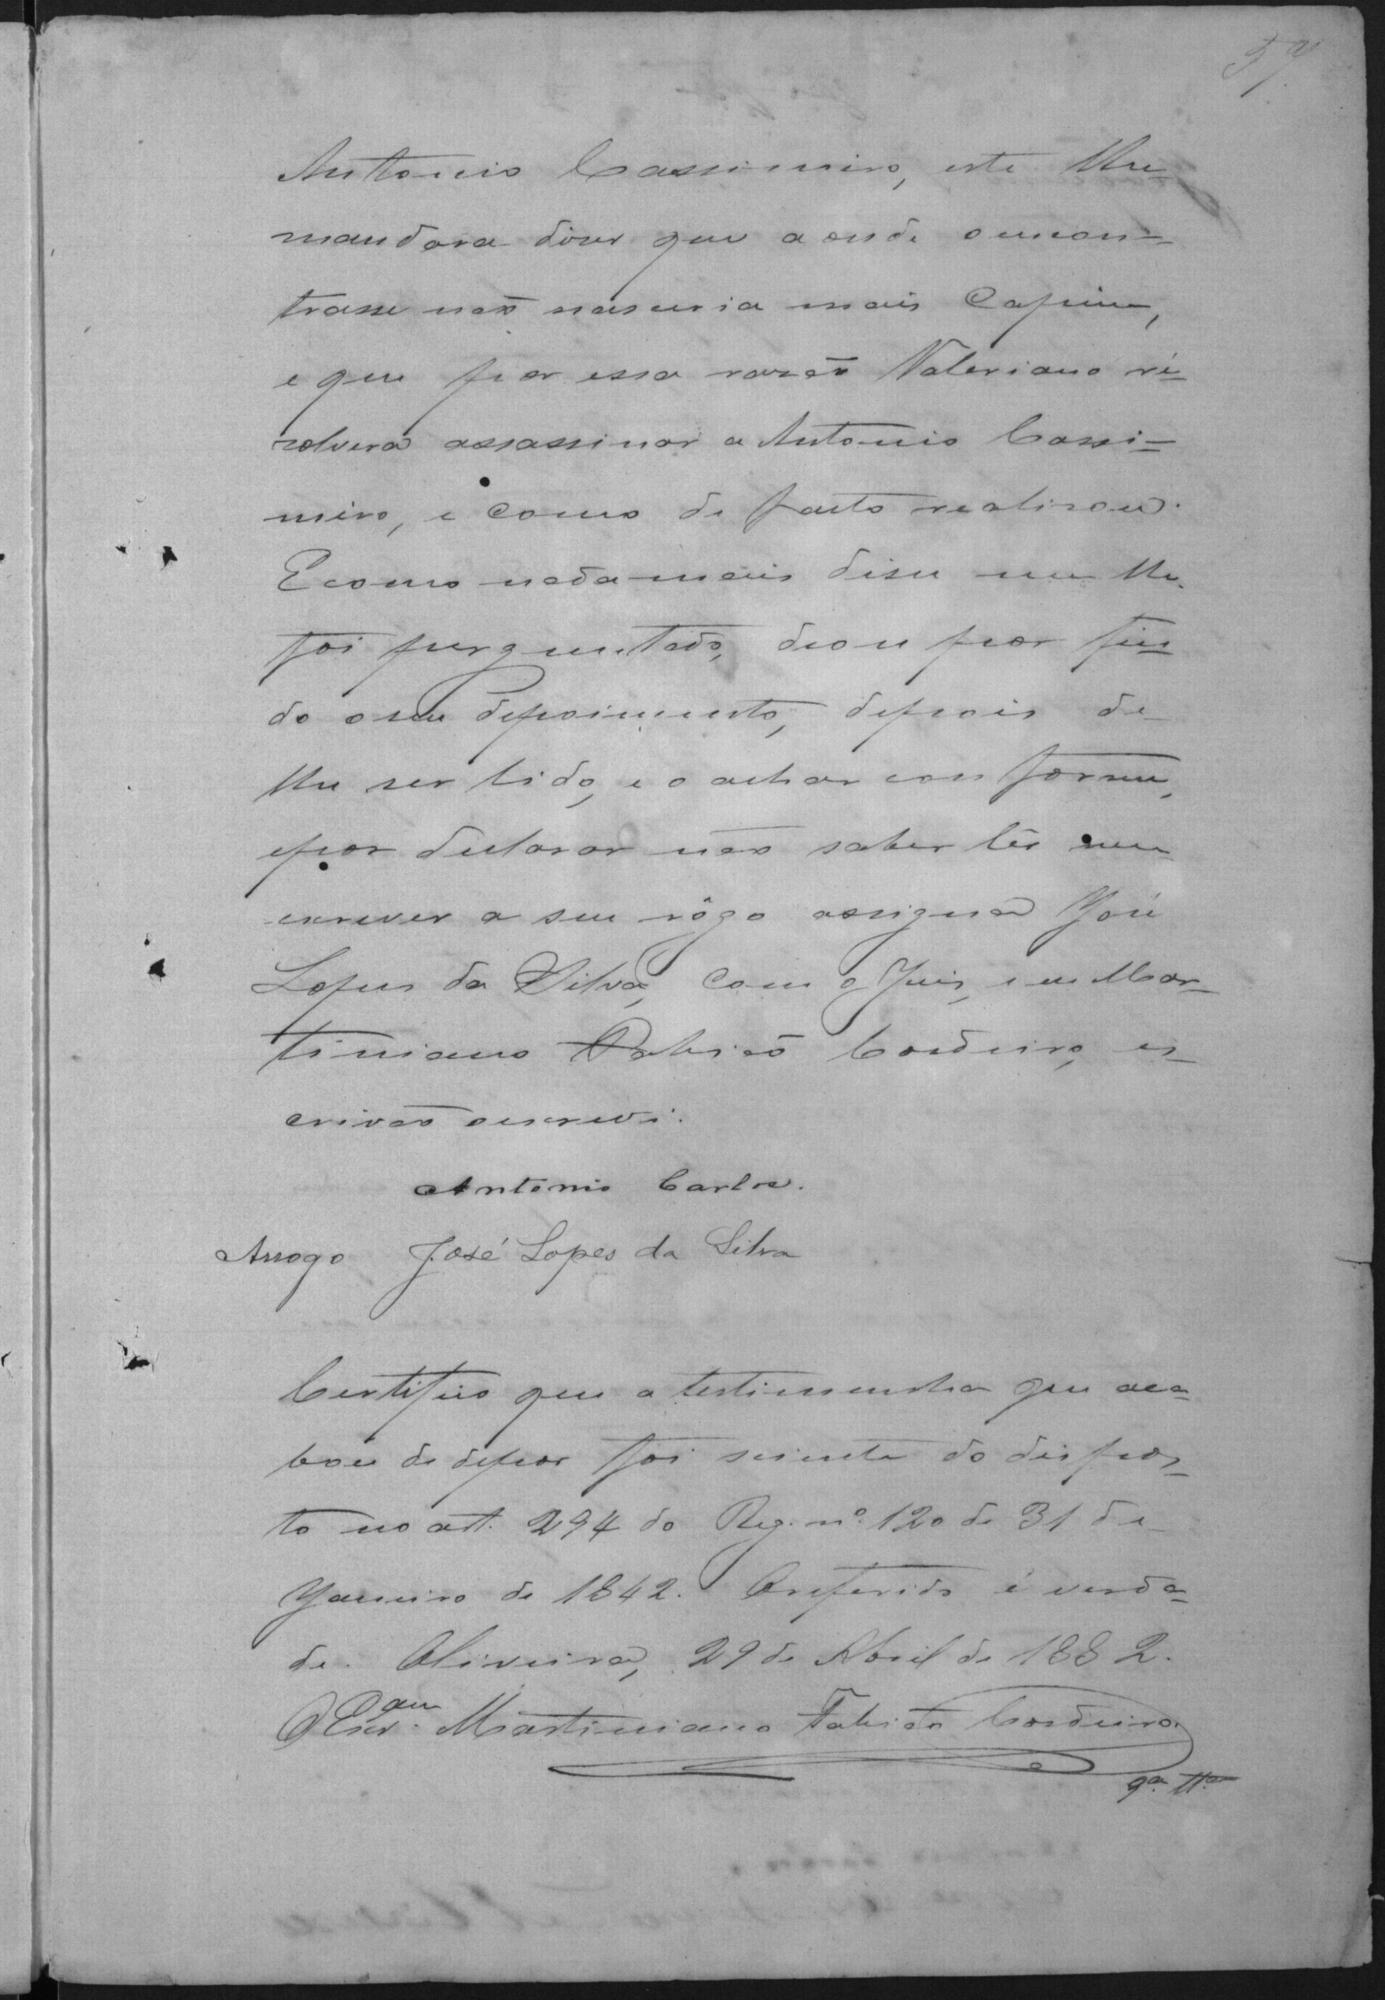 57
Antonio Cassimiro, este lhe
mandara diser que aonde o encon=
trasse não nasceria mais Capim,
e que por essa rasão Valeriano re=
solvera assassinar a Antonio Cassi=
miro, e como de facto realisou.
E como nada mais disse nem lhe
foi perguntado, deou por fin=
do o seu depoimento, depois de
lhe ser lido, e o achar conforme,
e por declarar não saber lêr nem
escrever a seu rôgo assigna José
Lopes da Silva, com o Juis, e eu Mar=
tiniano Fabricio Cordeiro, es=
crivão o escrevi.
Antonio Carlos.
Arrogo José Lopes da Silva
Certifico que a testimunha que aca=
bou de depor foi sciente do dispos=
to no art. 294 do Reg. nº. 120 de 31 de
Janeiro de 1842. O referido é verda=
de. Oliveira, 29 de Abril de 1882.
O Escr.am Martiniano Fabricio Cordeiro.
9ª. Tta.